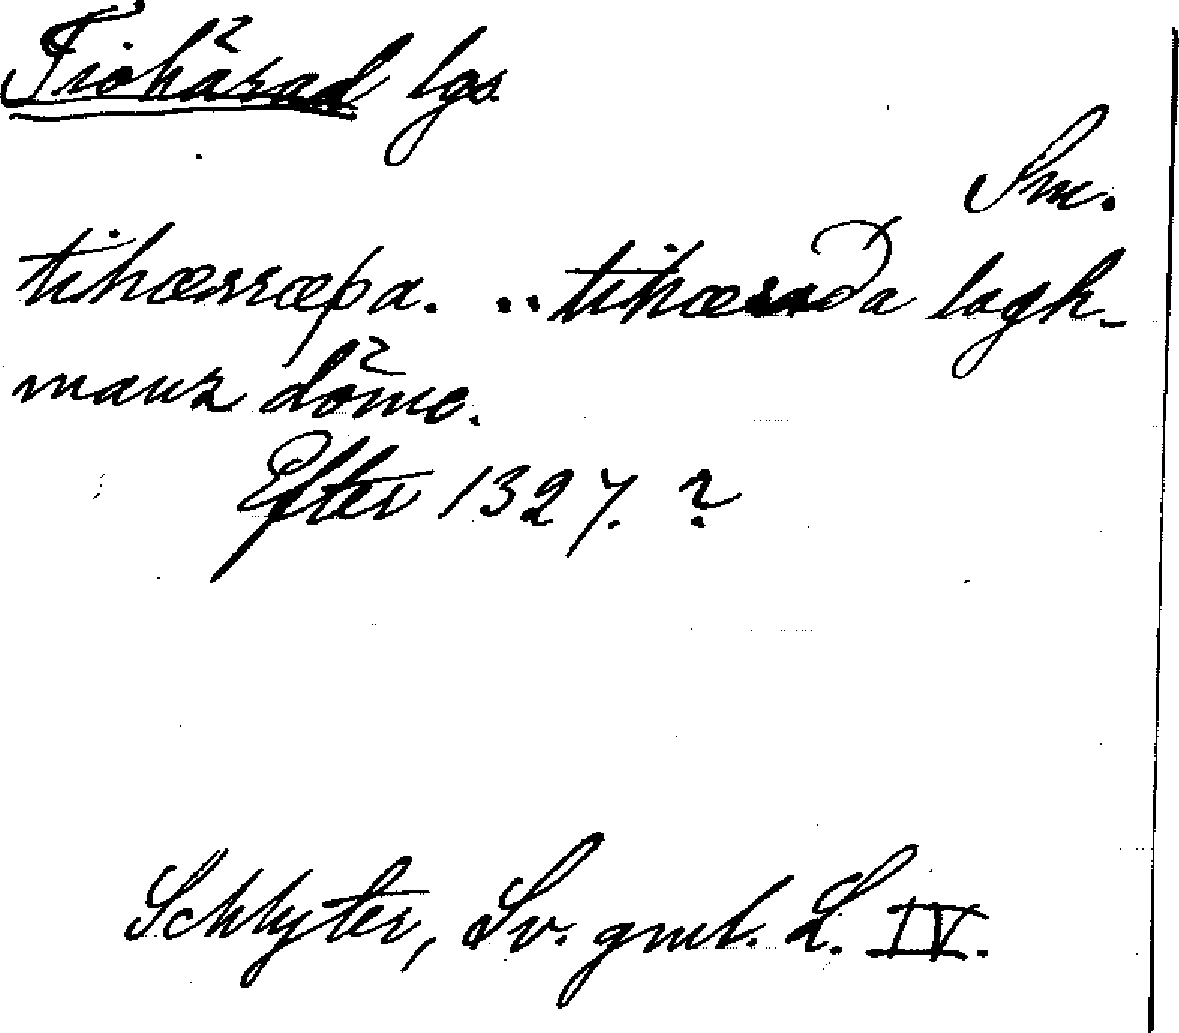 Tiohärad lgs.
Sm.
tihærræþa. .. tihæraða lagh-
manz döme.
Efter 1327. ?
Schlyter, Sv. gml. L. IV.